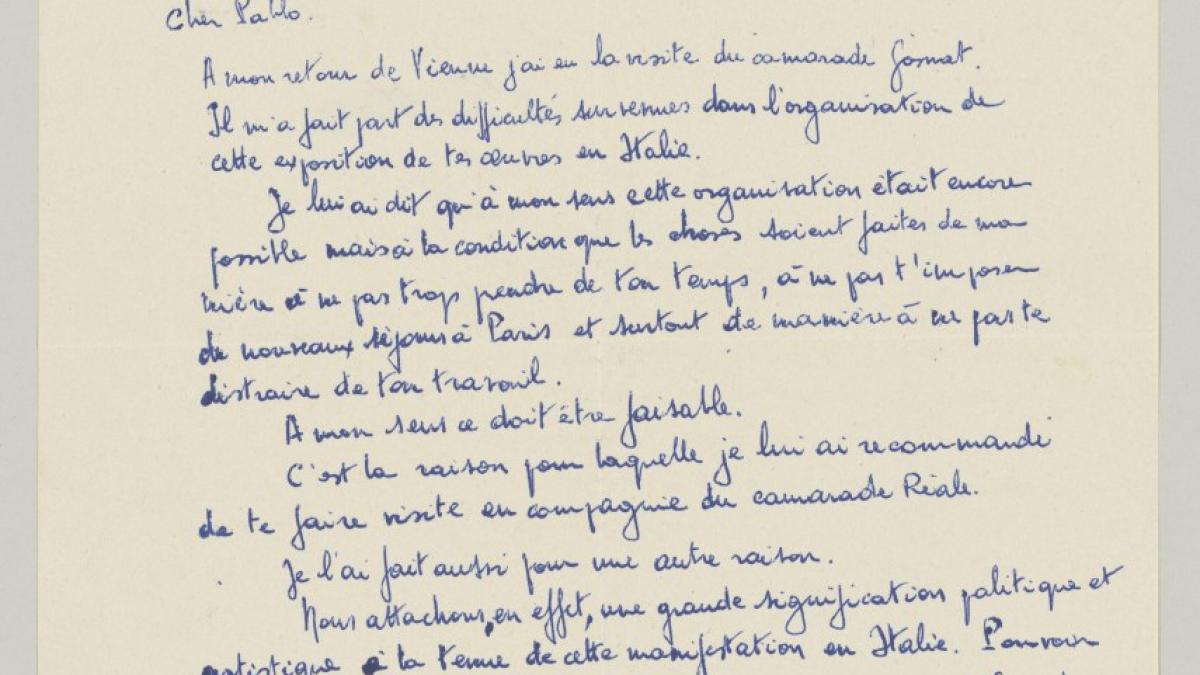 Cher Pablo.
A mon retour de Vienne j'ai eu la visite du camarade Gosnat.
Il m'a fait part des difficultés survenues dans l'organisation de
cette exposition de tes œuvres en Italie.
Je lui ai dit qu'à mon sens cette organisation était encore
possible mais à la condition que les choses soient faites de ma
nière à ne pas trop prendre de ton temps, à ne pas t'imposer
de nouveaux séjours à Paris et surtout de manière à ne pas te
distraire de ton travail.
A mon sens ce doit être faisable.
C'est la raison pour laquelle je lui ai recommandé
de te faire visite en compagnie du camarade Réale.
Je l'ai fait aussi pour une autre raison.
Nous attachons, en effet, une grande signification politique et
artistique à la tenue de cette manifestation en Italie. Pouvoir